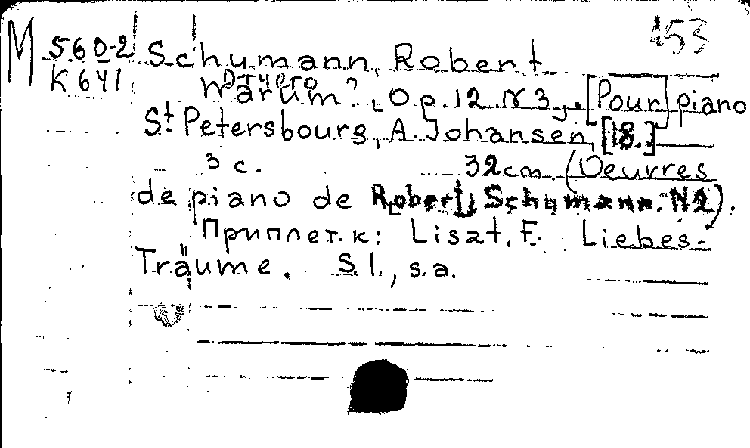 M 560-2 Schumann, Robert 153
K 641 Отчего
Warum?, Op. 12 N 3,. [Pour] piano
St Petersbourg, A. Johansen, [18..]
3 с. 32 cm (Oeuvres
de piano de Robert Schumann. N2).
Приплет. к: Liszt, F. Liebes-
Träume. S. l., s.a.